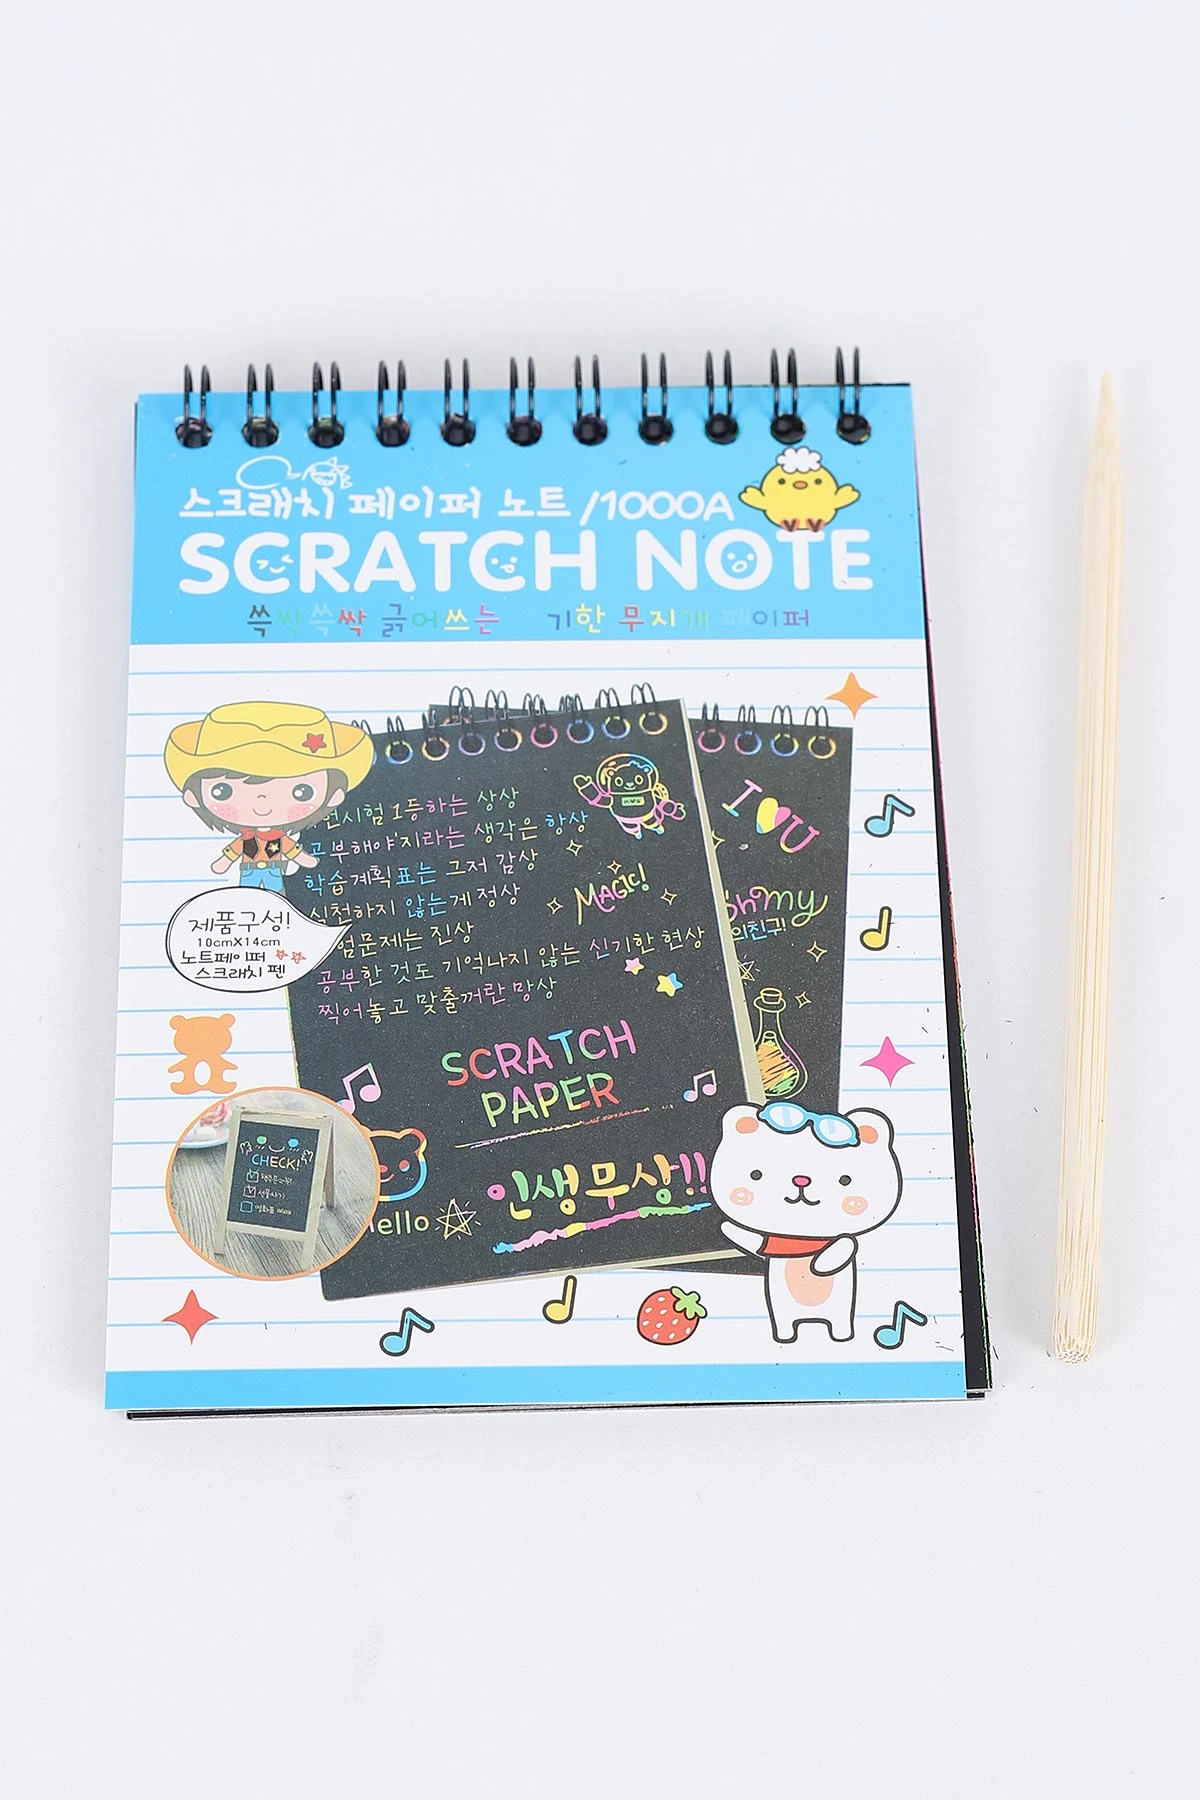 스크래치 페이퍼 노트 /1000A
SCRATCH NOTE
쓱싹쓱싹 긁어쓰는 기한 무지개 페이퍼
제품구성!
10cmX14cm
노트페이퍼
스크래치 펜
1등하는 상상
공부해야지라는 생각은 항상
학습계획표는 그저 감상
실천하지 않는게 정상
시험문제는 진상
공부한 것도 기억나지 않는 신기한 현상
찍어놓고 맞출꺼란 망상
MAGIC!
I U
Oh my
SCRATCH
PAPER
인생무상!!
Hello
CHECK!
선물사기
영화표 예매